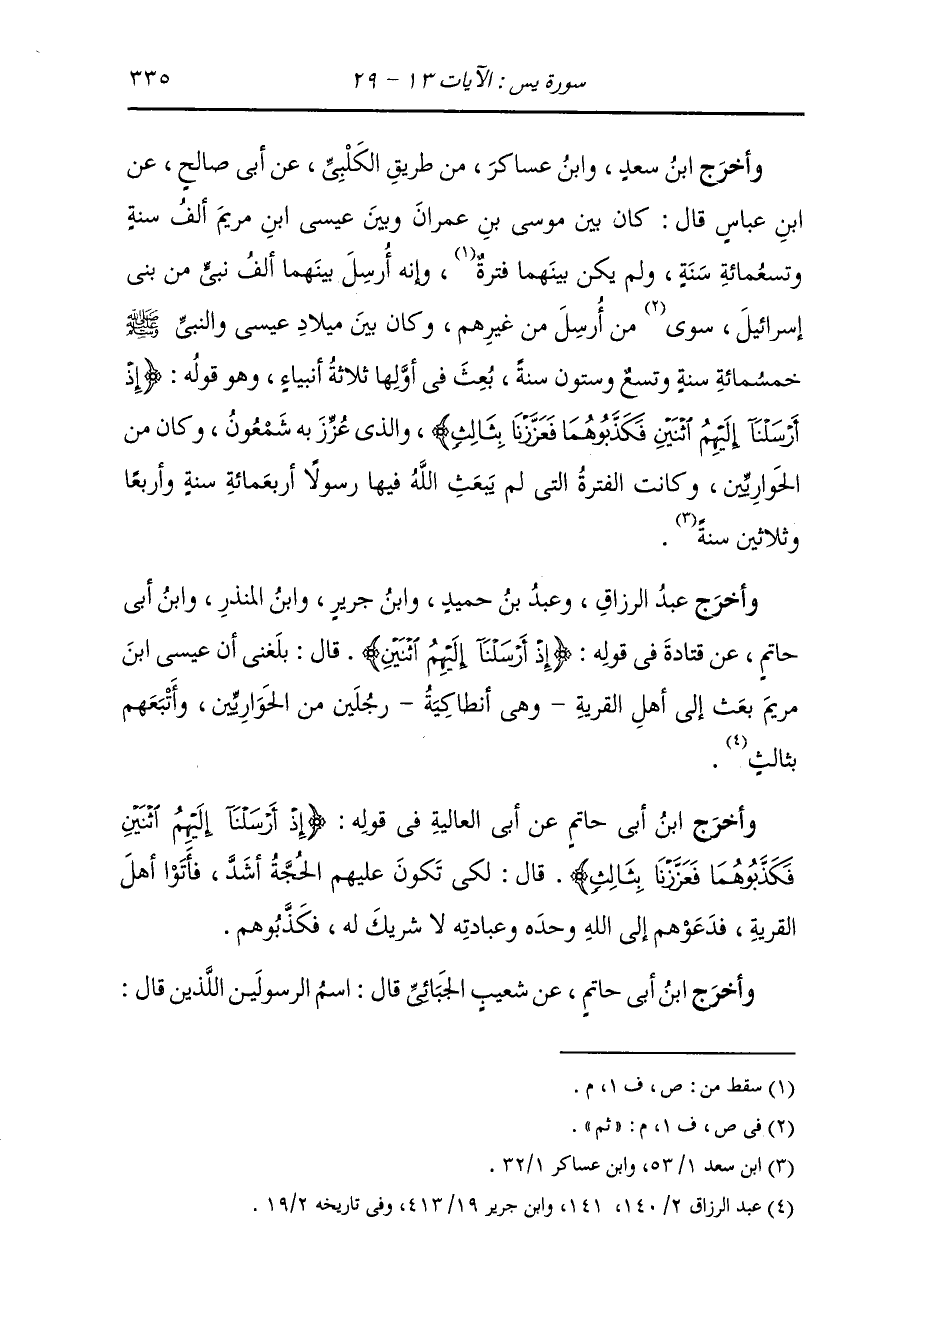 سورة يس : الآيات ١٣ - ٢٩ ٣٣٥
وأخرَج ابنُ سعدٍ ، وابنُ عساكرَ ، من طريقِ الكَلْبِىِّ ، عن أبى صالحٍ ، عن
ابنِ عباسٍ قال : كان بين موسى بنِ عمرانَ وبينَ عيسى ابنِ مريمَ ألفُ سنةٍ
وتسعُمائةِ سَنَةٍ ، ولم يكن بينَهما فترةٌ(١) ، وإنه أُرسِلَ بينَهما ألفُ نبىٍّ من بنى
إسرائيلَ ، سوى(٢) من أُرسِلَ من غيرِهم ، وكان بينَ ميلادِ عيسى والنبىِّ ﷺ
خمسُمائةِ سنةٍ وتسعٌ وستون سنةً ، بُعِثَ فى أوَّلِها ثلاثةُ أنبياءٍ ، وهو قولُه : ﴿إِذْ
أَرْسَلْنَآ إِلَيْهِمُ ٱثْنَيْنِ فَكَذَّبُوهُمَا فَعَزَّزْنَا بِثَالِثٍ﴾ ، والذى عُزِّزَ به شَمْعُونُ ، وكان من
الحَوارِيِّين ، وكانت الفترةُ التى لم يَبعَثِ اللَّهُ فيها رسولًا أربعَمائةِ سنةٍ وأربعًا
وثلاثين سنةً(٣) .
وأخرَج عبدُ الرزاقِ ، وعبدُ بنُ حميدٍ ، وابنُ جريرٍ ، وابنُ المنذرِ ، وابنُ أبى
حاتمٍ ، عن قتادةَ فى قولِه : ﴿إِذْ أَرْسَلْنَآ إِلَيْهِمُ ٱثْنَيْنِ﴾ . قال : بلَغنى أن عيسى ابنَ
مريمَ بعَث إلى أهلِ القريةِ - وهى أنطاكِيَةُ - رجُلَين من الحَوَارِيِّين ، وأَتْبَعَهم
بثالثٍ(٤) .
وأخرَج ابنُ أبى حاتمٍ عن أبى العاليةِ فى قولِه : ﴿إِذْ أَرْسَلْنَآ إِلَيْهِمُ ٱثْنَيْنِ
فَكَذَّبُوهُمَا فَعَزَّزْنَا بِثَالِثٍ﴾ . قال : لكى تَكونَ عليهم الحُجَّةُ أشدَّ ، فأَتَوْا أهلَ
القريةِ ، فدَعَوْهم إلى اللهِ وحدَه وعبادتِه لا شريكَ له ، فكَذَّبُوهم .
وأخرَج ابنُ أبى حاتمٍ ، عن شعيبٍ الجَبَائِىِّ قال : اسمُ الرسولَيـن اللَّذين قال :
(١) سقط من : ص ، ف ١ ، م .
(٢) فى ص ، ف ١ ، م : « ثم » .
(٣) ابن سعد ١ /٥٣ ، وابن عساكر ٣٢/١ .
(٤) عبد الرزاق ٢/ ١٤٠ ، ١٤١ ، وابن جرير ١٩ /٤١٣ ، وفى تاريخه ١٩/٢ .